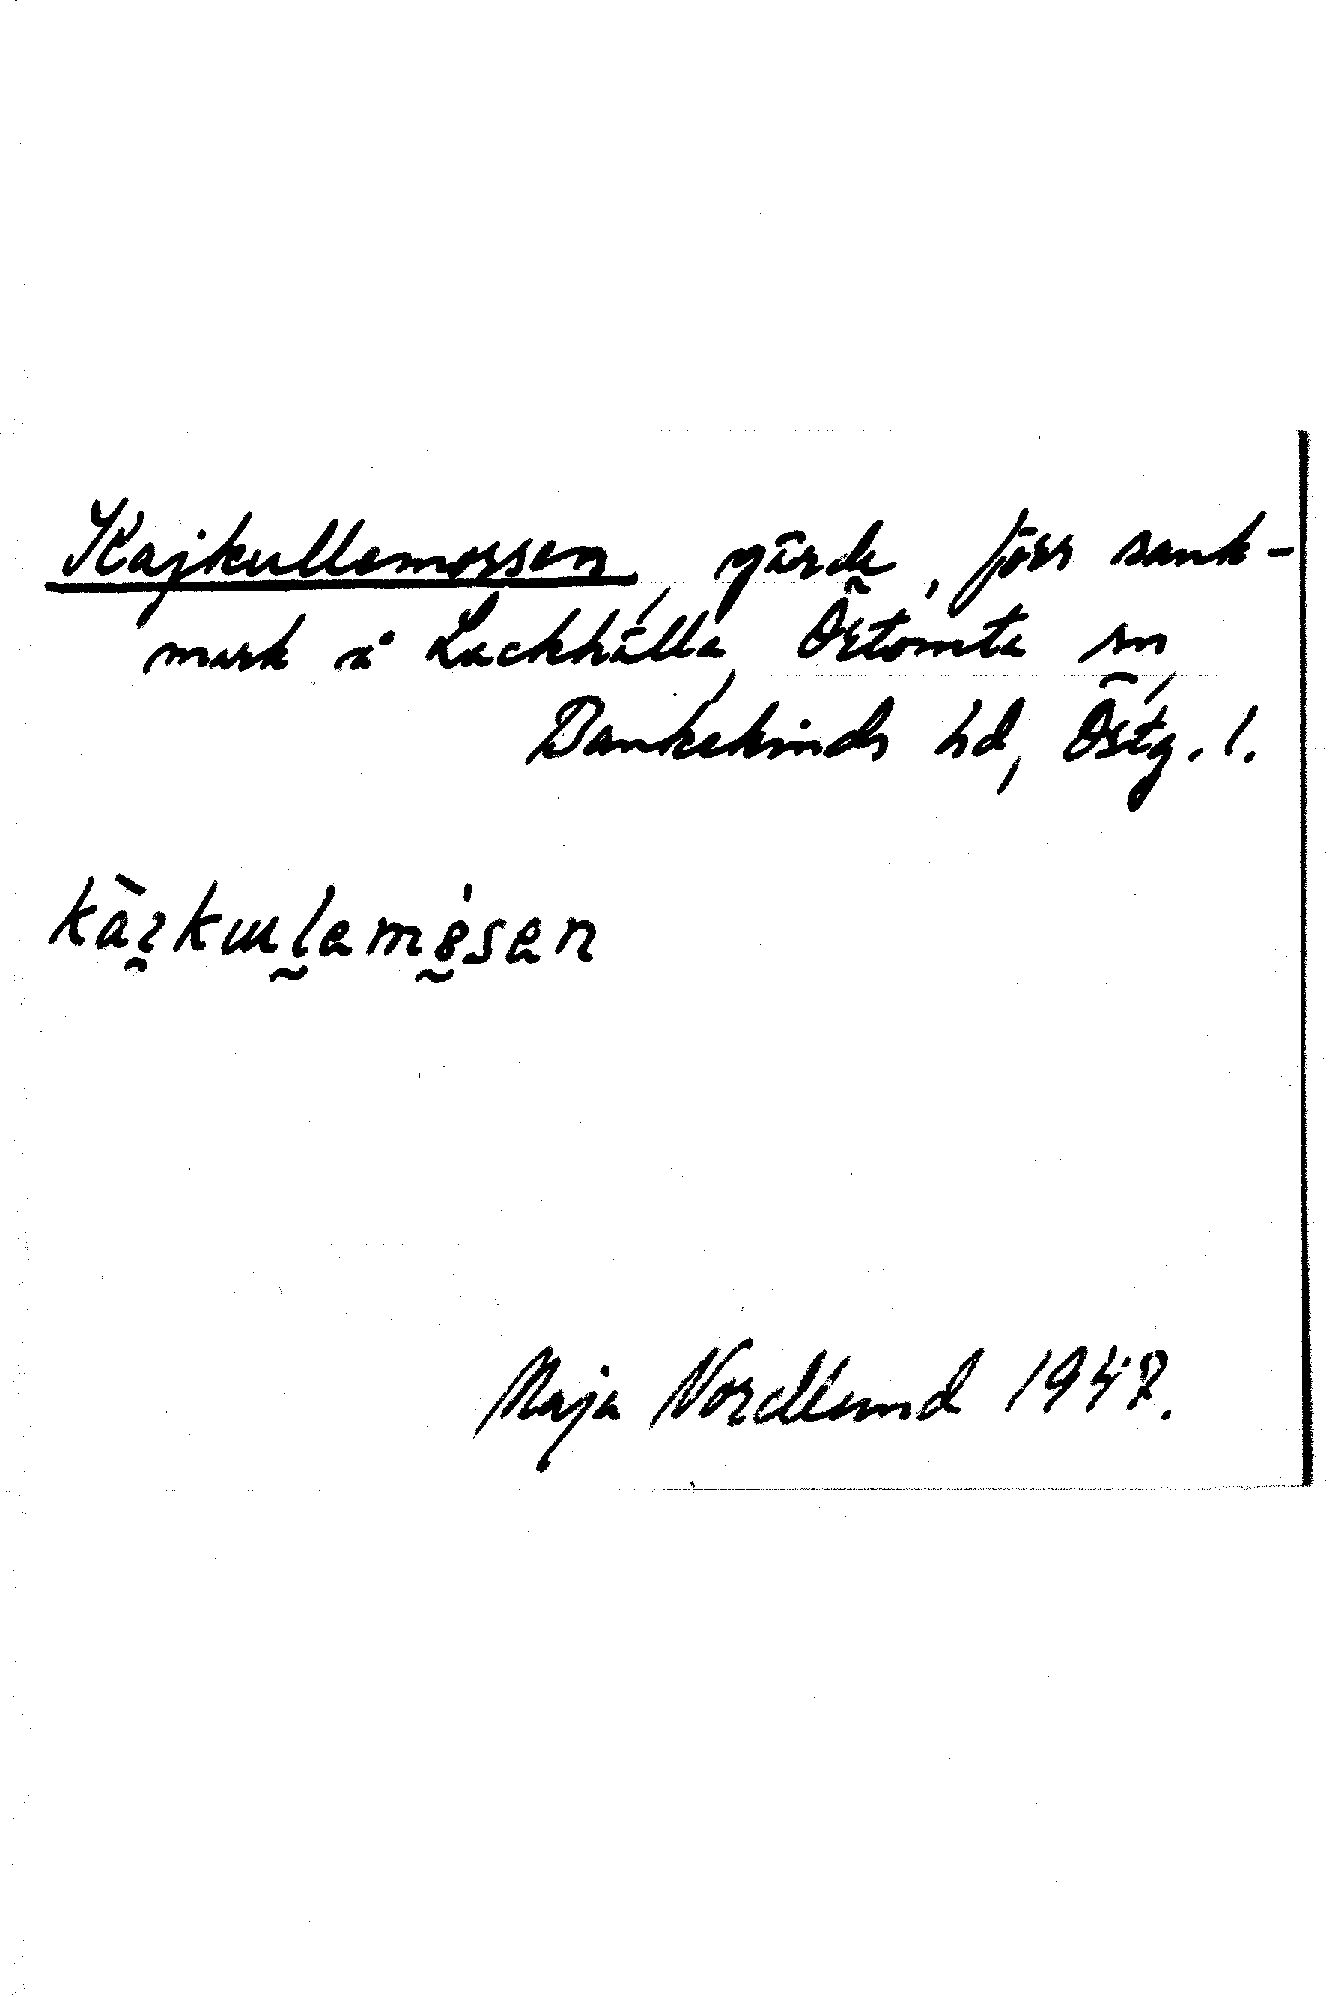 Kajkullemossen, gärde, förr sank-
mark å Lackhälla, Östomta sn,
Bankekinds hd, Östg. l.
kàɪkuḷamösan
Maja Nordlund 1947.